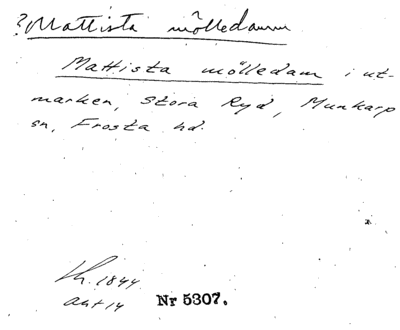 ?Mattista mölledamm
Mattista mölledam i ut-
marken, Stora Ryd, Munkarp
sn, Frosta hd.
1844
akt 14 Nr 5307.